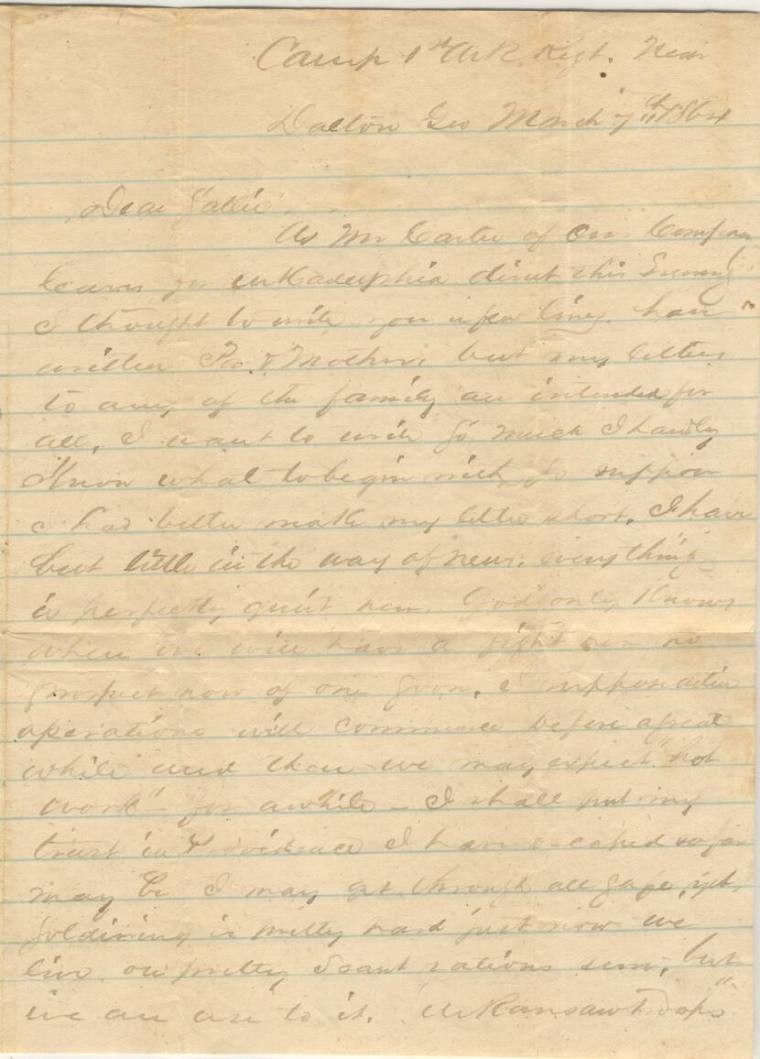 Camp 1st Ark. Regt. Near
Dalton Geo March 7th 1864
Dear Sallie
As Mr Carter of Our Company
leaves for Arkadelphia direct this Evening
I thought to write you a few lines. have
written Pa & Mother, but my letters
to any of the family are intended for
all, I want to write so much I hardly
Know what to begin with, so suppose
I had better make my letter short. I have
but little in the way of news. everything
is perfectly quiet now. God only Knows
when we will have a fight no
prospect now of one soon, I suppose active
operations will commence before a great
while and then we may expect "hot
work" for awhile - I shall put my
trust in Providence I have escaped so far
may be I may get through all safe, yet,
Soldiering is pretty hard just now we
live on pretty scant rations sure, but
we are use to it. "Arkansaw troops"